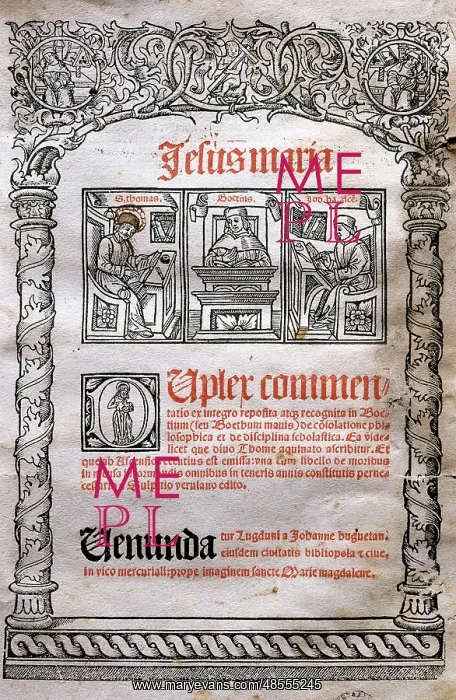 Jesus maria
S. thomas. Boetius.
Uplex commen/
tatio ex integro reposita atqz recognita in Boe/
tium (seu Boethum mauis) de cõsolatione phi
losophica et de disciplina scholastica. Ea vide/
licet que diuo Thome aquinato ascribitur. Et
que ab Ascensio recentius est emissa: vna cum libello de moribus
in mensa omnibus in teneris annis constitutis perne/
Sulpitio verulano edito.
Uenunda tur Lugduni a Johanne huguetan.
eiusdem ciuitatis bibliopola et ciue,
in vico mercuriali: prope imaginem sancte Marie magdalene.
ME
PL
ME
PL
www.maryevans.com/48555245